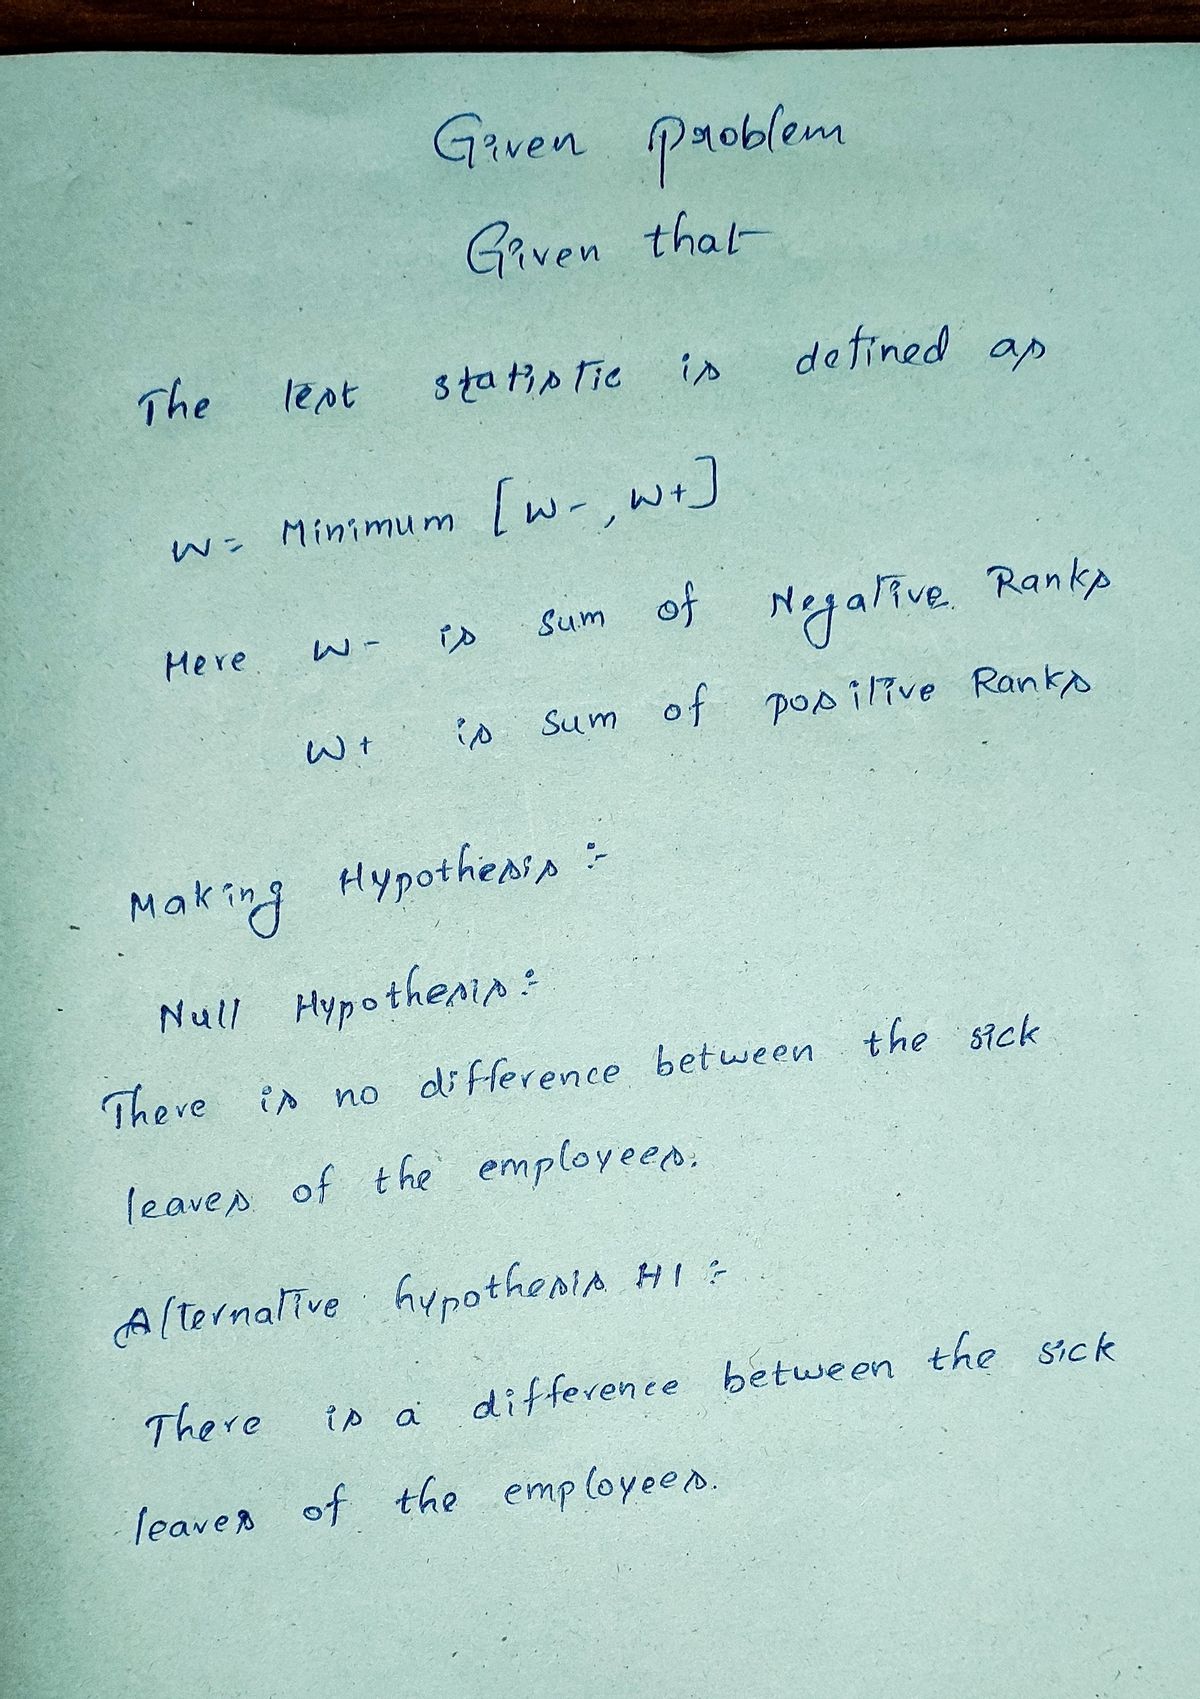 Given problem
Given that
The test statistic is defined as
W= Minimum [W-, W+]
Here W- is sum of Negative Ranks
W+ is sum of positive Ranks
Making Hypothesis :-
Null Hypothesis :-
There is no difference between the sick
leaves of the employees.
Alternative hypothesis H1 :-
There is a difference between the sick
leaves of the employees.